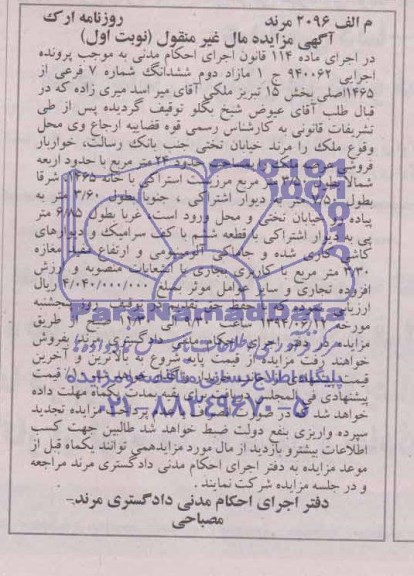 م الف ۲۰۹۶ مرند روزنامه ارک
آگهی مزایده مال غیر منقول (نوبت اول)
در اجرای ماده ۱۱۴ قانون اجرای احکام مدنی به موجب پرونده
اجرایی ۹۴۰۰۶۲ ج ۱ مازاد دوم ششدانگ شماره ۷ فرعی از
۱۴۶۵اصلی بخش ۱۵ تبریز ملکی آقای میر اسد میری زاده که در
قبال طلب آقای عیوض شیخ بگلو توقیف گردیده پس از طی
تشریفات قانونی به کارشناس رسمی قوه قضاییه ارجاع وی محل
وقوع ملک را مرند خیابان نختی جنب بانک رسالت، خواربار
فروشی ملک مساحت حدود ۲۴ متر مربع با حدود اربعه
شمالا بطول متر مربع مرزیست اشتراکی با خانه ۱۴۶۵ شرقا
بطول دیوار اشتراکی ، جنوبا بطول ۳/۶۰ متر به
پیاده رو خیابان نختی و محل ورود است. غربا بطول ۶/۸۵ متر
پی به دیوار اشتراکی با قطعه ششم با کف سرامیک و دیوارهای
کاشی کاری شده و آلومینیومی و ارتفاع مغازه
۳/۳۰ متر مربع با کاربری تجاری با انشعابات منصوبه و ارزش
افزوده تجاری و سایر عوامل موثر بمبلغ ۴/۰۴۰/۰۰۰/۰۰۰ ریال
ارزیابی حفظ حق تقدم توقیف روز پنجشنبه
مورخه ساعت ۹/۳۰ الی صبح از طریق
مزایده در دفتر اجرای احکام مدنی دادگستری مرند بفروش
خواهند رفت مزایده از قیمت پایه شروع به بالاترین و آخرین
قیمت پیشنهادی خواهد شد قیمت
پیشنهادی فی المجلس دریافت برای بقیه بمدت یکماه مهلت داده
خواهد شد پرداخت مزایده تجدید
سپرده واریزی بنفع دولت ضبط خواهد شد طالبین جهت کسب
اطلاعات بیشتر و بازدید از مال مورد مزایده می توانند یکماه قبل از
موعد مزایده به دفتر اجرای احکام مدنی دادگستری مرند مراجعه
و در جلسه مزایده شرکت نمایند .
دفتر اجرای احکام مدنی دادگستری مرند-
مصباحی
ParsNamadData
پایگاه اطلاع رسانی مناقصه و مزایده
۰۲۱-۸۸۳۴۹۶۷۰-۵